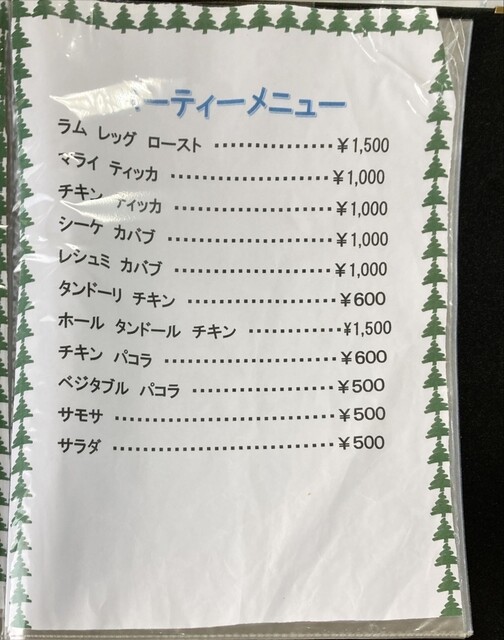 パーティーメニュー
ラム レッグ ロースト ‥‥‥‥‥‥‥ ￥1,500
マライ ティッカ ‥‥‥‥‥‥‥‥‥ ￥1,000
チキン ティッカ ‥‥‥‥‥‥‥‥‥ ￥1,000
シーケ カバブ ‥‥‥‥‥‥‥‥‥ ￥1,000
レシュミ カバブ ‥‥‥‥‥‥‥‥‥ ￥1,000
タンドーリ チキン ‥‥‥‥‥‥‥‥‥ ￥600
ホール タンドール チキン ‥‥‥‥‥ ¥1,500
チキン パコラ ‥‥‥‥‥‥‥‥‥‥ ￥600
ベジタブル パコラ ‥‥‥‥‥‥‥‥ ￥500
サモサ ‥‥‥‥‥‥‥‥‥‥‥‥‥ ￥500
サラダ ‥‥‥‥‥‥‥‥‥‥‥‥‥ ￥500